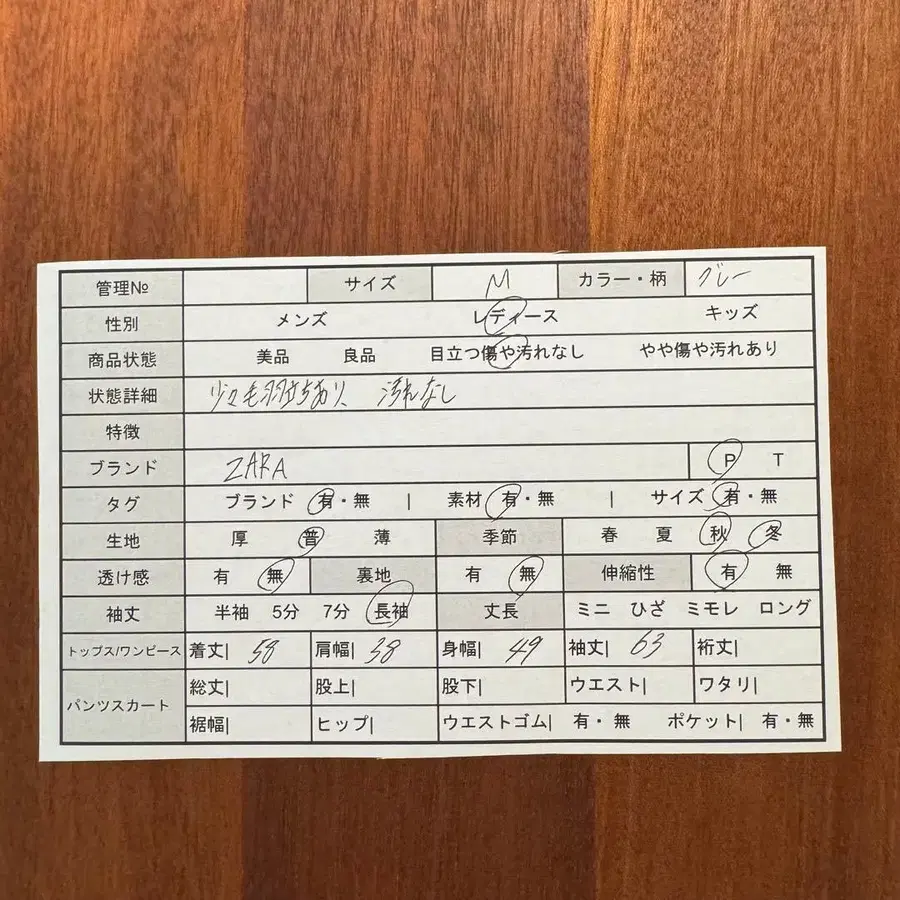 管理№ サイズ M カラー・柄 グレー
性別 メンズ レディース キッズ
商品状態 美品 良品 目立つ傷や汚れなし やや傷や汚れあり
状態詳細 少々毛羽立ちあり、 汚れなし
特徴
ブランド ZARA P T
タグ ブランド 有・無 | 素材 有・無 | サイズ 有・無
生地 厚 普 薄 季節 春 夏 秋 冬
透け感 有 無 裏地 有 無 伸縮性 有 無
袖丈 半袖 5分 7分 長袖 丈長 ミニ ひざ ミモレ ロング
トップス/ワンピース 着丈| 58 肩幅| 38 身幅| 49 袖丈| 63 裄丈|
パンツスカート 総丈| 股上| 股下| ウエスト| ワタリ|
裾幅| ヒップ| ウエストゴム| 有・無 ポケット| 有・無